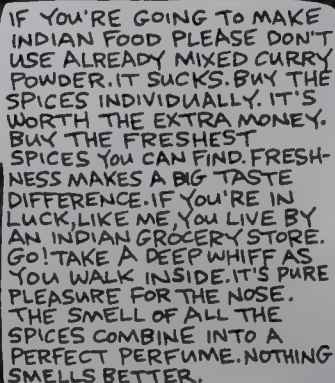 IF YOU'RE GOING TO MAKE
INDIAN FOOD PLEASE DON'T
USE ALREADY MIXED CURRY
POWDER. IT SUCKS. BUY THE
SPICES INDIVIDUALLY. IT'S
WORTH THE EXTRA MONEY.
BUY THE FRESHEST
SPICES YOU CAN FIND. FRESH-
NESS MAKES A BIG TASTE
DIFFERENCE. IF YOU'RE IN
LUCK, LIKE ME, YOU LIVE BY
AN INDIAN GROCERY STORE.
GO! TAKE A DEEP WHIFF AS
YOU WALK INSIDE. IT'S PURE
PLEASURE FOR THE NOSE.
THE SMELL OF ALL THE
SPICES COMBINE INTO A
PERFECT PERFUME. NOTHING
SMELLS BETTER.